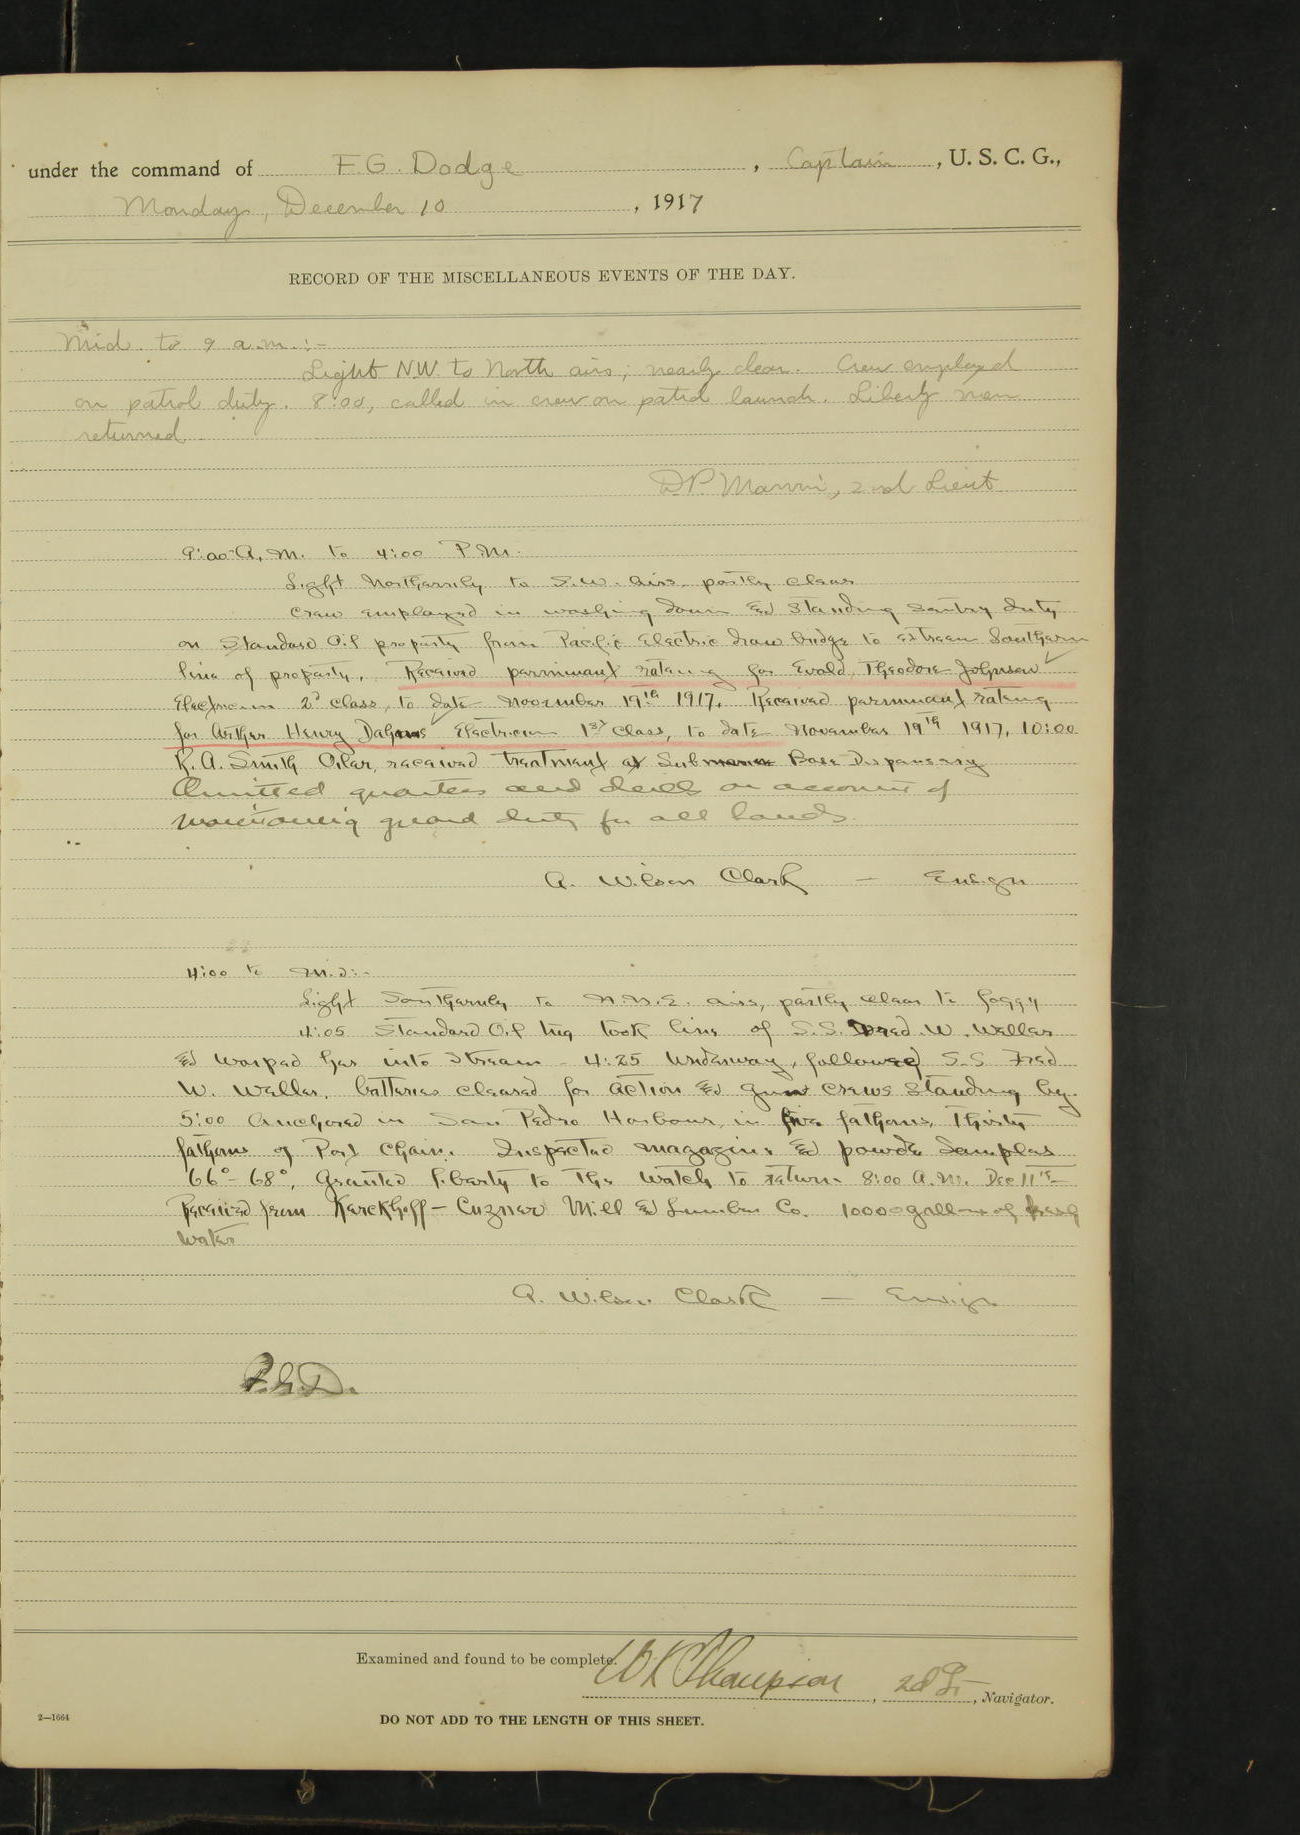 under the command of F. G. Dodge , Captain , U. S. C. G.,
Monday, December 10 , 1917
RECORD OF THE MISCELLANEOUS EVENTS OF THE DAY.
Mid. to 9 a.m.:-
Light N.W. to North airs; nearly clear. Crew employed
on patrol duty. 8:00, called in crew on patrol launch. Liberty men
returned.
2nd Lieut
9:00 A.M. to 4:00 P.M.
Light Northernly to S.W. airs partly clear
Crew employed in washing down & standing sentry duty
on Standard Oil property from Pacific Electric draw bridge to extreem Southern
line of property. Received perminant rating for Evald Theodore Johnson
Electrician 2d class, to date November 19th 1917. Received perminant rating
for Arther Henry Dahms Electrician 1st class, to date November 19th 1917. 10:00
R. A. Smith Oiler, received treatment at Submarine Base Dispensary
Omitted quarters and drills on account of
maintaining guard duty for all hands.
A. Wilson Clark — Ensign
4:00 to Mid:-
Light Southernly to N.N.E. airs, partly clear to foggy
4:05 Standard Oil tug took line of S.S. Fred W. Weller
& warped her into stream - 4:25 Underway, followed S.S. Fred
W. Weller, batteries cleared for action & gun crews standing by.
5:00 Anchored in San Pedro Harbour, in five fathoms, Thirty
fathoms of Port chain. Inspected magazines & powder samples
66° - 68°, Granted liberty to the watch to return 8:00 A.M. Dec 11th
Received from Kerckhoff - Cuzner Mill & Lumber Co. 10000 gallons of fresh
water
A. Wilson Clark — Ensign
F.G.D.
Examined and found to be complete.
W K Thompson , 2d Lt , Navigator.
2—1664
DO NOT ADD TO THE LENGTH OF THIS SHEET.